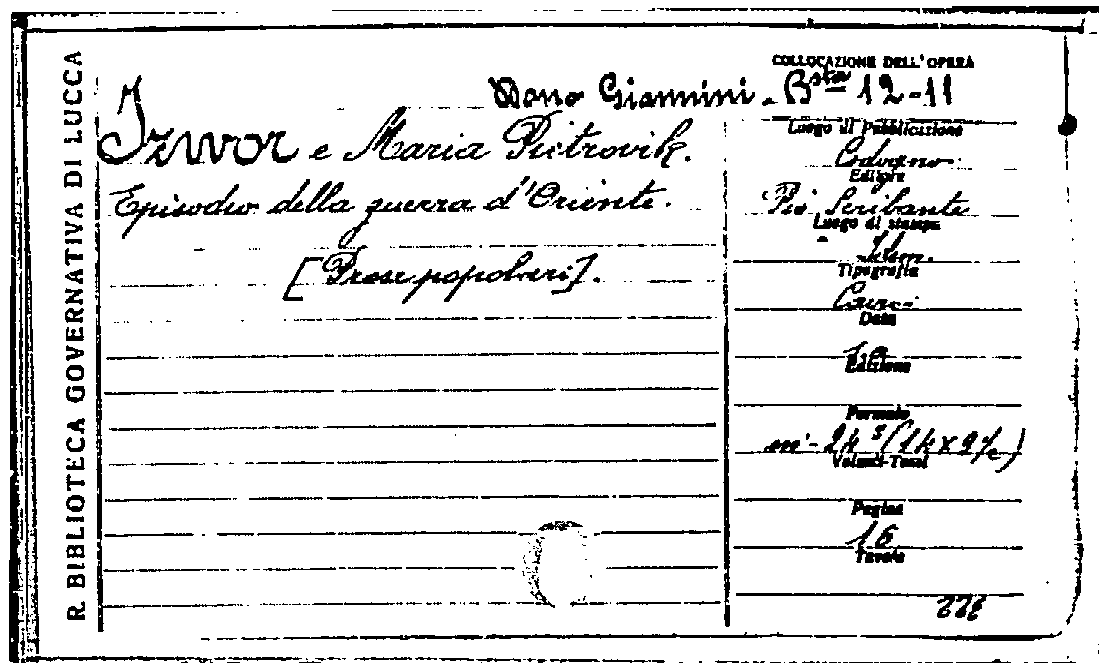 R. BIBLIOTECA GOVERNATIVA DI LUCCA
COLLOCAZIONE DELL'OPERA
Dono Giannini. B.sta 12-11
Izwor e Maria Pietrovik.
Episodio della guerra d'Oriente.
[Prose popolari].
Luogo di Pubblicazione
Codogno
Editore
Pio Scribante
Luogo di stampa
Idem.
Tipografia
Cairo
Data
Edizione
Formato
in-24° (14x9½)
Volumi-Tomi
Pagine
16
Tavole
222